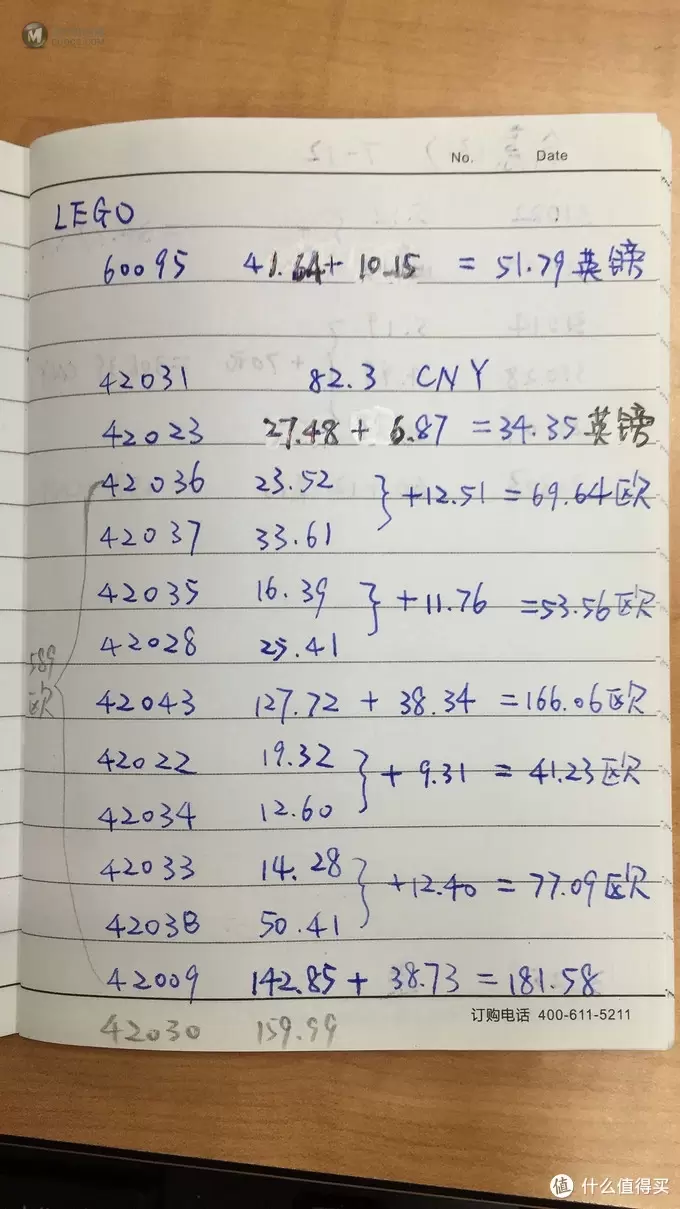 No. Date
LEGO
60095 41.64+ 10.15 = 51.79 英镑
42031 82.3 CNY
42023 27.48 + 6.87 = 34.35 英镑
42036 23.52 } +12.51 = 69.64欧
42037 33.61
42035 16.39 } +11.76 =53.56欧
42028 25.41
589
欧
42043 127.72 + 38.34 =166.06欧
42022 19.32 } + 9.31 = 41.23欧
42034 12.60
42033 14.28 } +12.40 = 77.09欧
42038 50.41
42009 142.85 + 38.73 =181.58
订购电话 400-611-5211
42030 159.99
值 什么值得买